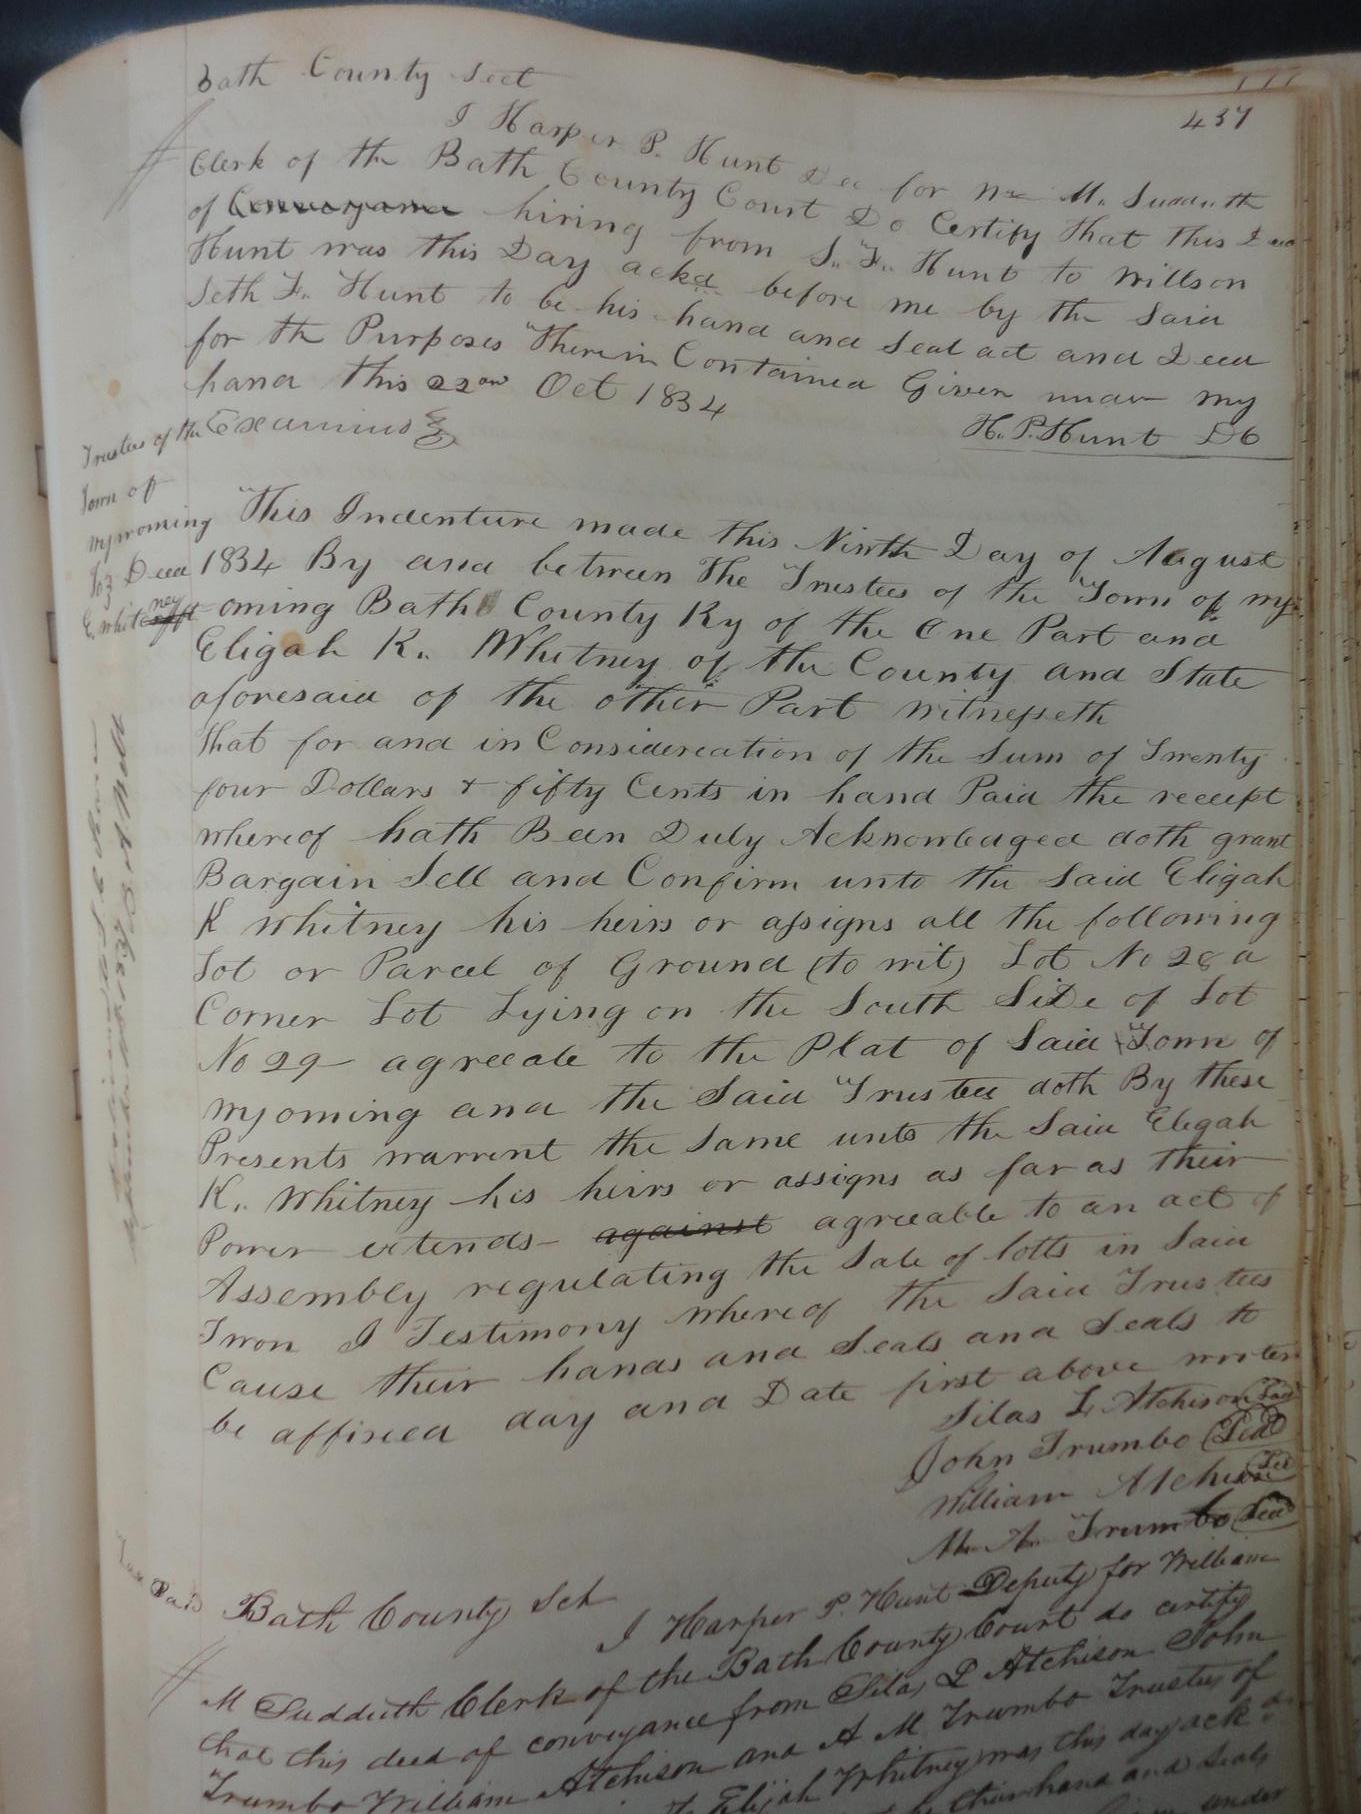 437
Bath County Sect
I Harper P. Hunt Dec for Wm M. Sudduth
Clerk of the Bath County Court Do Certify that this Deed
of Conveyance hiring from S. F. Hunt to Willson
Hunt was this Day ackd before me by the Said
Seth F. Hunt to be his hand and Seal act and Deed
for the Purposes Therein Contained Given under my
hand this 22nd Oct 1834
H. P. Hunt DC
Trustees of the
Town of
Myoming
To } Deed
E. Whitney
This Indenture made this Ninth Day of August
1834 By and between The Trustees of the Town of my-
oming Bath County Ky of the One Part and
Eligah K. Whitney of the County and State
aforesaid of the other Part witnesseth
that for and in Considereation of the Sum of Twenty
four Dollars & fifty Cents in hand Paid the receipt
whereof hath Been Duly Acknowledged doth grant
Bargain Sell and Confirm unto the Said Eligah
K Whitney his heirs or assigns all the following
Lot or Parcel of Ground (to wit) Lot No 28 a
Corner Lot Lying on the South Side of Lot
No 29 agreeable to the Plat of Said Town of
Myoming and the Said Trustees doth By these
Presents warrent the Same unto the Said Elegah
K. Whitney his heirs or assigns as far as their
Power extends against agreeable to an act of
Assembly regulating the Sale of lotts in Said
Twon I Testimony whereof the Said Trustees
Cause their hands and Seals and Seals to
be affixed day and Date first above writen
Silas L Atchison Seal
John Trumbo Seal
William Atchison Seal
M. A. Trumbo Seal
Tax Paid
Bath County Sct
I Harper P. Hunt Deputy for William
M Sudduth Clerk of the Bath County Court do certify
that this deed of conveyance from Silas L Atchison John
Trumbo William Atchison and A M Trumbo Trustees of
to Elijah Whitney was this day ackd
their hand and Seals
under